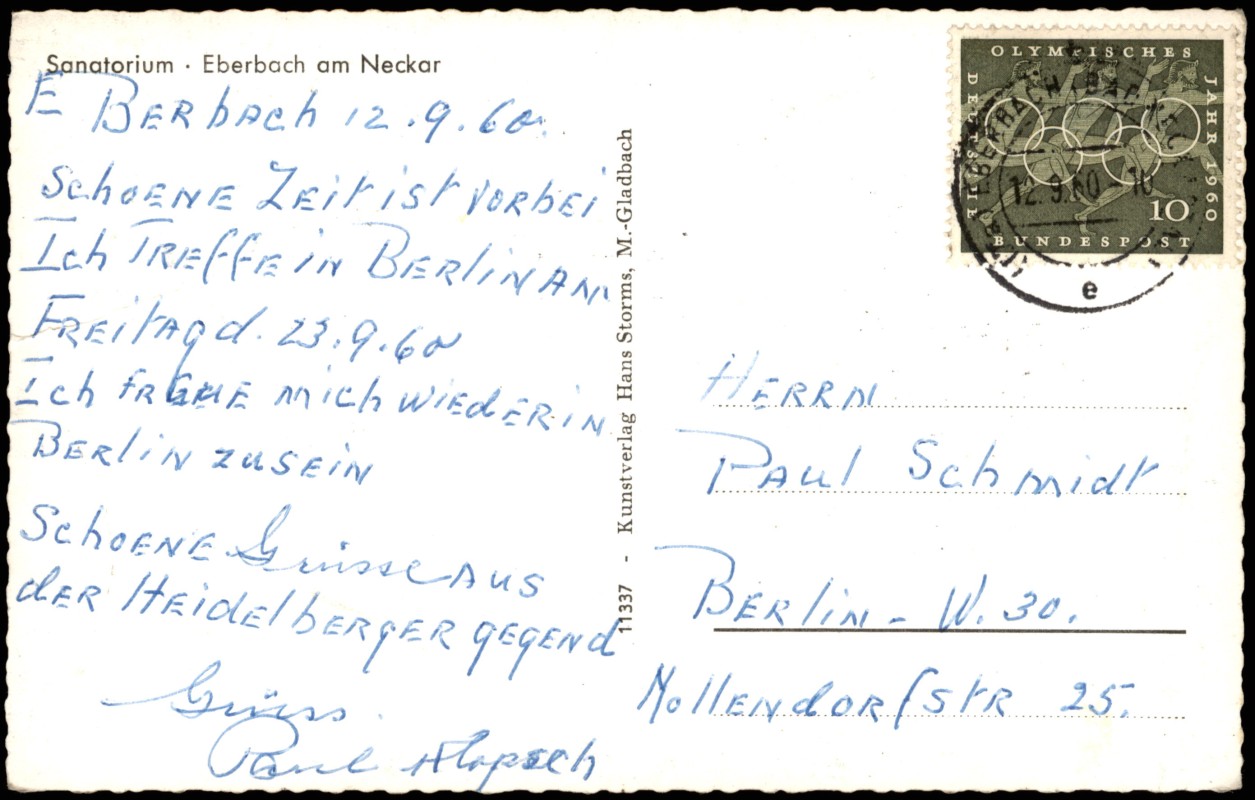 Sanatorium · Eberbach am Neckar
EBERbach 12.9.60.
SchoENE Zeit ist vorbei
Ich TREffE iN BERliN AM
FREitAg d. 23.9.60
Ich FREUE mich wiEdER iN
BERliN zu SEiN
SchoENE Grüsse AUS
dER HEidElbERgER gEgENd
Grüss.
Paul
11337 - Kunstverlag Hans Storms, M.-Gladbach
OLYMPISCHES
JAHR 1960
DEUTSCHE
BUNDESPOST
10
EBERBACH (BADEN)
12.9.60-10
e
HERRN
PAUl Schmidt
BERliN - W. 30.
NollENdoRfstR 25.